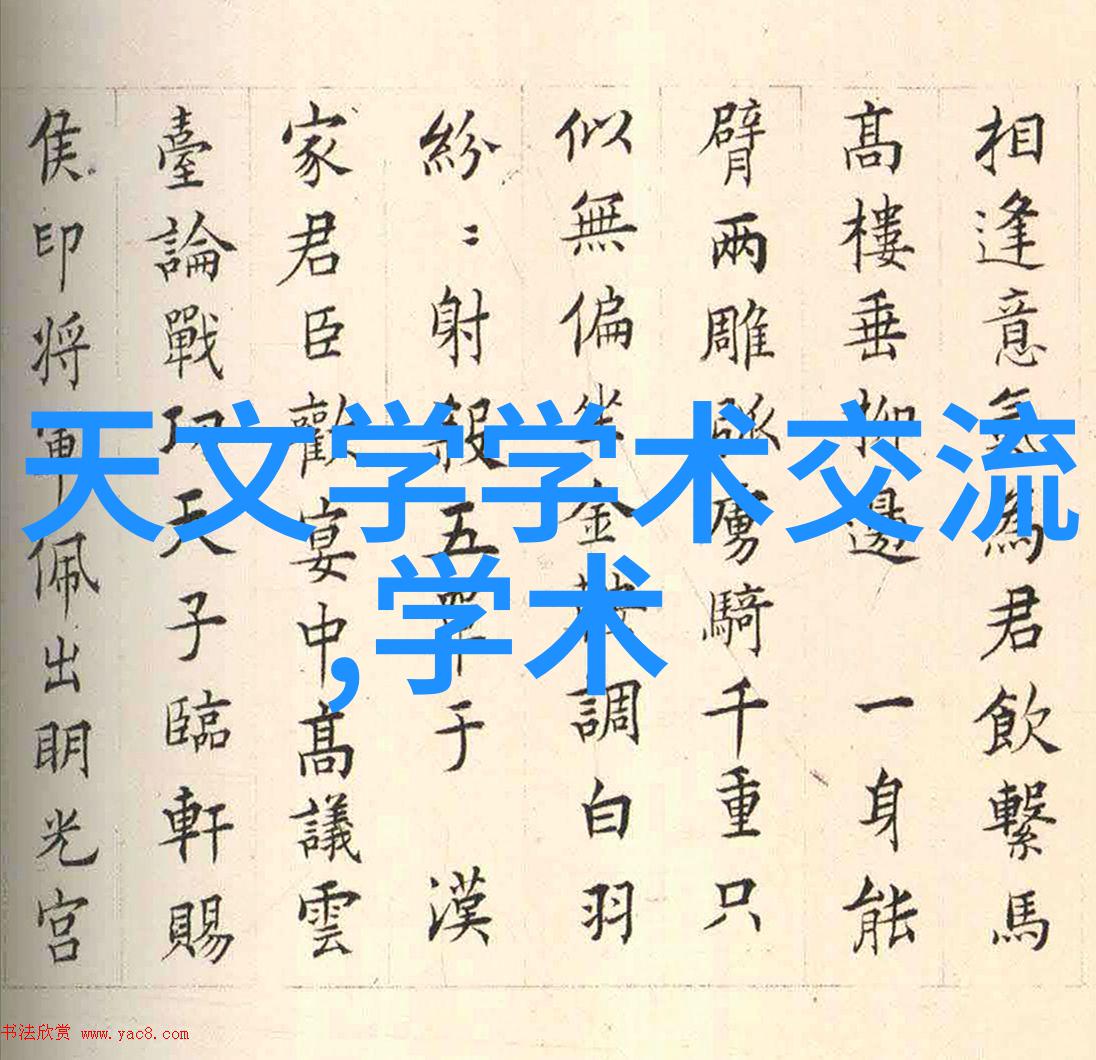 相逢意氣為君飲繫馬
髙樓垂柳邊 一身能
臂兩雕弧虜騎千重只
似無偏坐金鞍調白羽
紛〻射殺五單于 漢
家君臣歡宴中髙議雲
臺論戰功天子臨軒賜
侯印将軍佩出明光宮
天文学学术交流
,学术
书法欣赏 www.yac8.com